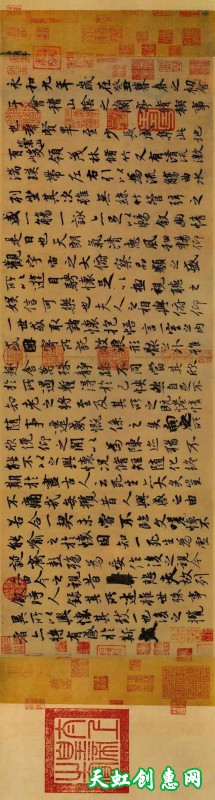 永和九年歲在癸丑暮春之初會
于會稽山陰之蘭亭脩稧事
也群賢畢至少長咸集此地
有崇山峻領茂林脩竹又有清流激
湍暎帶左右引以為流觴曲水
列坐其次雖無絲竹管弦之
盛一觴一詠亦足以暢敘幽情
是日也天朗氣清惠風和暢仰
觀宇宙之大俯察品類之盛
所以遊目騁懷足以極視聽之
娛信可樂也夫人之相與俯仰
一世或取諸懷抱悟言一室之內
或因寄所託放浪形骸之外雖
趣舍萬殊靜躁不同當其欣
於所遇暫得於己怏然自足不
知老之將至及其所之既惓情
隨事遷感慨係之矣向之所
欣俛仰之間以為陳迹猶不
能不以之興懷況脩短隨化終
期於盡古人云死生亦大矣豈
不痛哉每攬昔人興感之由
若合一契未嘗不臨文嗟悼不
能喻之於懷固知一死生為虛
誕齊彭殤為妄作後之視今
亦由今之視昔悲夫故列
敘時人錄其所述雖世殊事
異所以興懷其致一也後之攬
者亦將有感於斯文
天虹创惠网